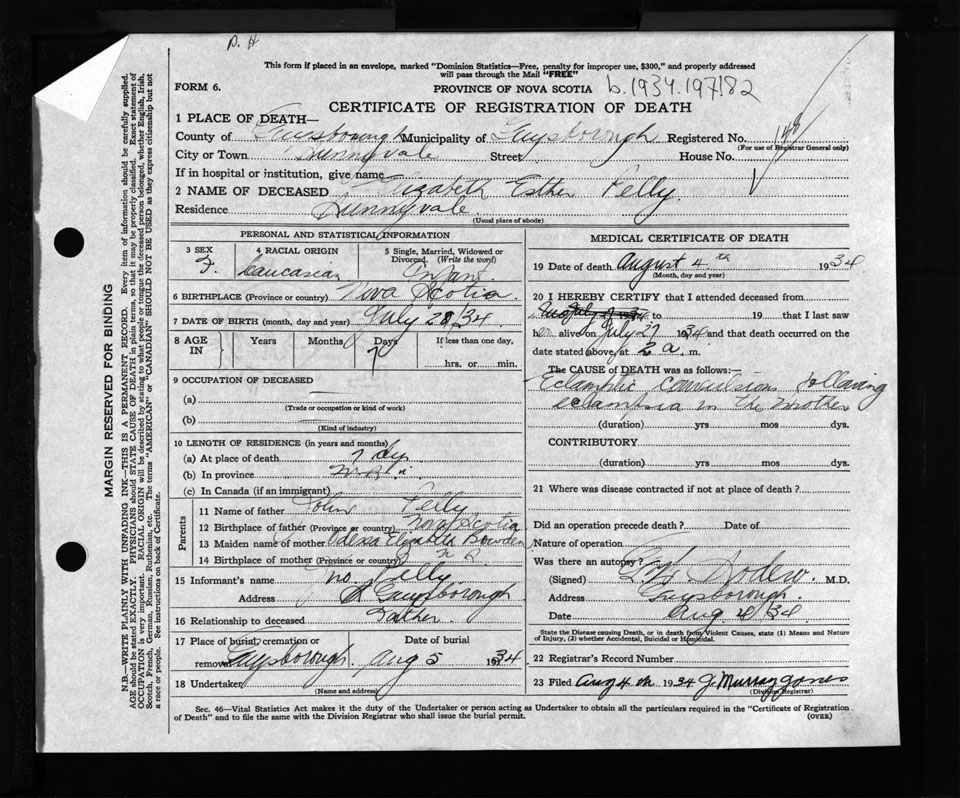 D. H
This form if placed in an envelope, marked "Dominion Statistics—Free, penalty for improper use, $300," and properly addressed
will pass through the Mail "FREE"
FORM 6. PROVINCE OF NOVA SCOTIA b.1934.197182
CERTIFICATE OF REGISTRATION OF DEATH
1 PLACE OF DEATH—
County of Guysborough Municipality of Guysborough Registered No. 148
(For use of Registrar General only)
City or Town Sunnyvale Street House No.
If in hospital or institution, give name
2 NAME OF DECEASED Elizabeth Esther Pelly
Residence Sunnyvale
(Usual place of abode)
PERSONAL AND STATISTICAL INFORMATION
3 SEX F. 4 RACIAL ORIGIN Caucasian 5 Single, Married, Widowed or Divorced. (Write the word) Infant
6 BIRTHPLACE (Province or country) Nova Scotia
7 DATE OF BIRTH (month, day and year) July 28/34
8 AGE IN Years Months Days 7 If less than one day, hrs. or min.
9 OCCUPATION OF DECEASED
(a)
(Trade or occupation or kind of work)
(b)
(Kind of industry)
10 LENGTH OF RESIDENCE (in years and months)
(a) At place of death 7 dys
(b) In province
(c) In Canada (if an immigrant)
Parents
11 Name of father John Pelly
12 Birthplace of father (Province or country) Nova Scotia
13 Maiden name of mother Odessa Elizabeth Bowden
14 Birthplace of mother (Province or country)
15 Informant's name Jno. Pelly
Address Guysborough
16 Relationship to deceased Father
17 Place of burial, cremation or removal Guysborough Date of burial Aug 5 1934
18 Undertaker
(Name and address)
MEDICAL CERTIFICATE OF DEATH
19 Date of death August 4th 1934
(Month, day and year)
20 I HEREBY CERTIFY that I attended deceased from
to 19 that I last saw
her alive on July 27 1934 and that death occurred on
date stated above, at 2 a. m.
The CAUSE OF DEATH was as follows:—
Eclamptic convulsions following
eclampsia in the mother
(duration) yrs mos dys.
CONTRIBUTORY
(duration) yrs. mos. dys.
21 Where was disease contracted if not at place of death?
Did an operation precede death? Date of
Nature of operation
Was there an autopsy?
(Signed) M.D.
Address Guysborough.
Date Aug 4/34
State the Disease causing Death, or in death from Violent Causes, state (1) Means and Nature
of Injury, (2) whether Accidental, Suicidal or Homicidal.
22 Registrar's Record Number
23 Filed Aug 4th 1934 J. Murray Jones
(Division Registrar)
Sec. 46—Vital Statistics Act makes it the duty of the Undertaker or person acting as Undertaker to obtain all the particulars required in the "Certificate of Registration
of Death" and to file the same with the Division Registrar who shall issue the burial permit. (OVER)
MARGIN RESERVED FOR BINDING
N.B.—WRITE PLAINLY WITH UNFADING INK—THIS IS A PERMANENT RECORD. Every item of information should be carefully supplied.
AGE should be stated EXACTLY. PHYSICIANS should STATE CAUSE OF DEATH in plain terms, so that it may be properly classified. Exact statement of
OCCUPATION is very important. RACIAL ORIGIN will be described by stating to what people or tongue the deceased person belonged, whether English, Irish,
Scotch, French, German, Russian, Ruthenian, etc. The terms "AMERICAN" or "CANADIAN" SHOULD NOT BE USED as they express citizenship but not
a race or people. See instructions on back of Certificate.